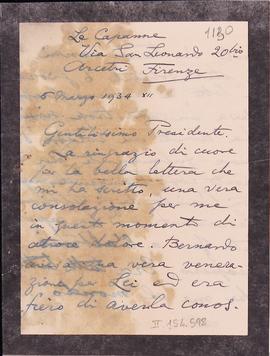 1130
Le Capanne
Via San Leonardo 20 bis
Arcetri Firenze
6 Marzo 1934 XII
Gentilissimo Presidente.
La ringrazio di cuore
per la bella lettera che
mi ha scritto, una vera
consolazione per me
in questi momenti di
atroce dolore. Bernardo
aveva una vera venera-
zione per Lei ed era
fiero di averla conos.
II 154.598